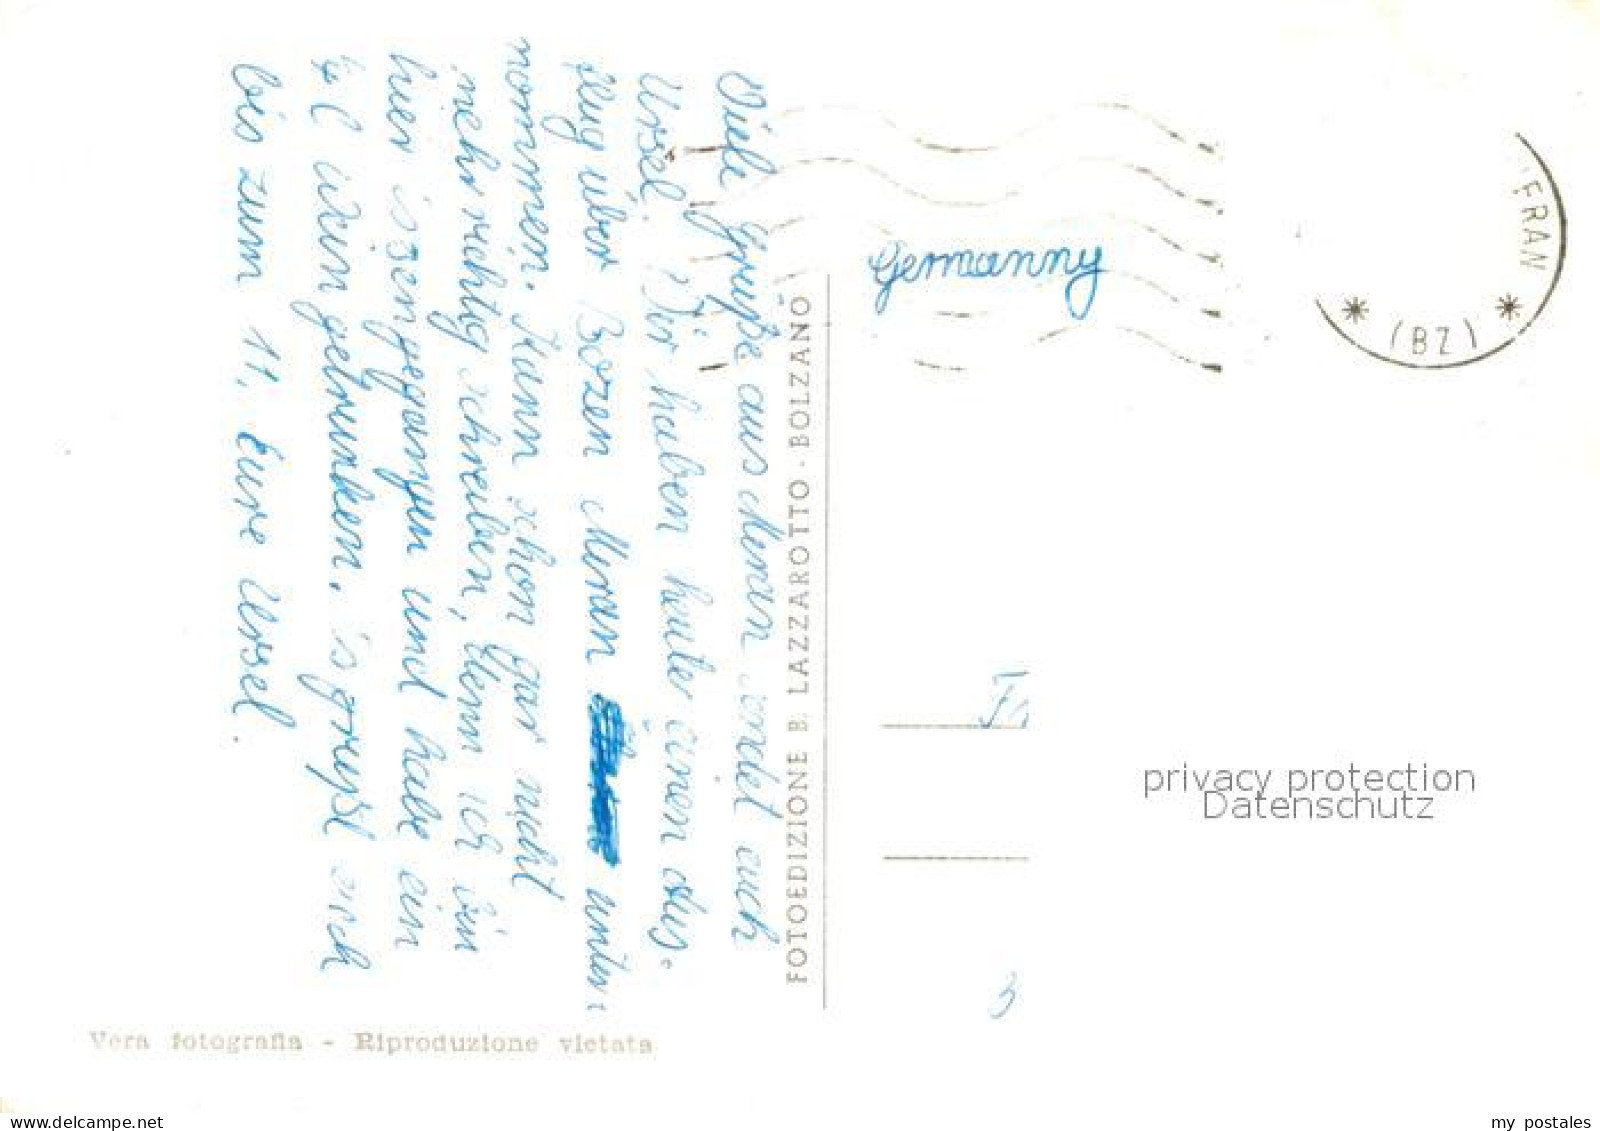 Viele Grüße aus Meran sendet euch
Ursel. Wir haben heute einen Aus-
flug über Bozen Meran unter-
nommen. Kann schon gar nicht
mehr richtig schreiben, denn ich bin
hier issengegangen und habe ein
¼ l Wein getrunken. Es grüßt euch
bis zum 11. Eure Ursel.
FOTOEDIZIONE B. LAZZAROTTO - BOLZANO
Germanny
FRAN
* (BZ) *
privacy protection
Datenschutz
3
Vera fotografia - Riproduzione vietata
www.delcampe.net
my_postales